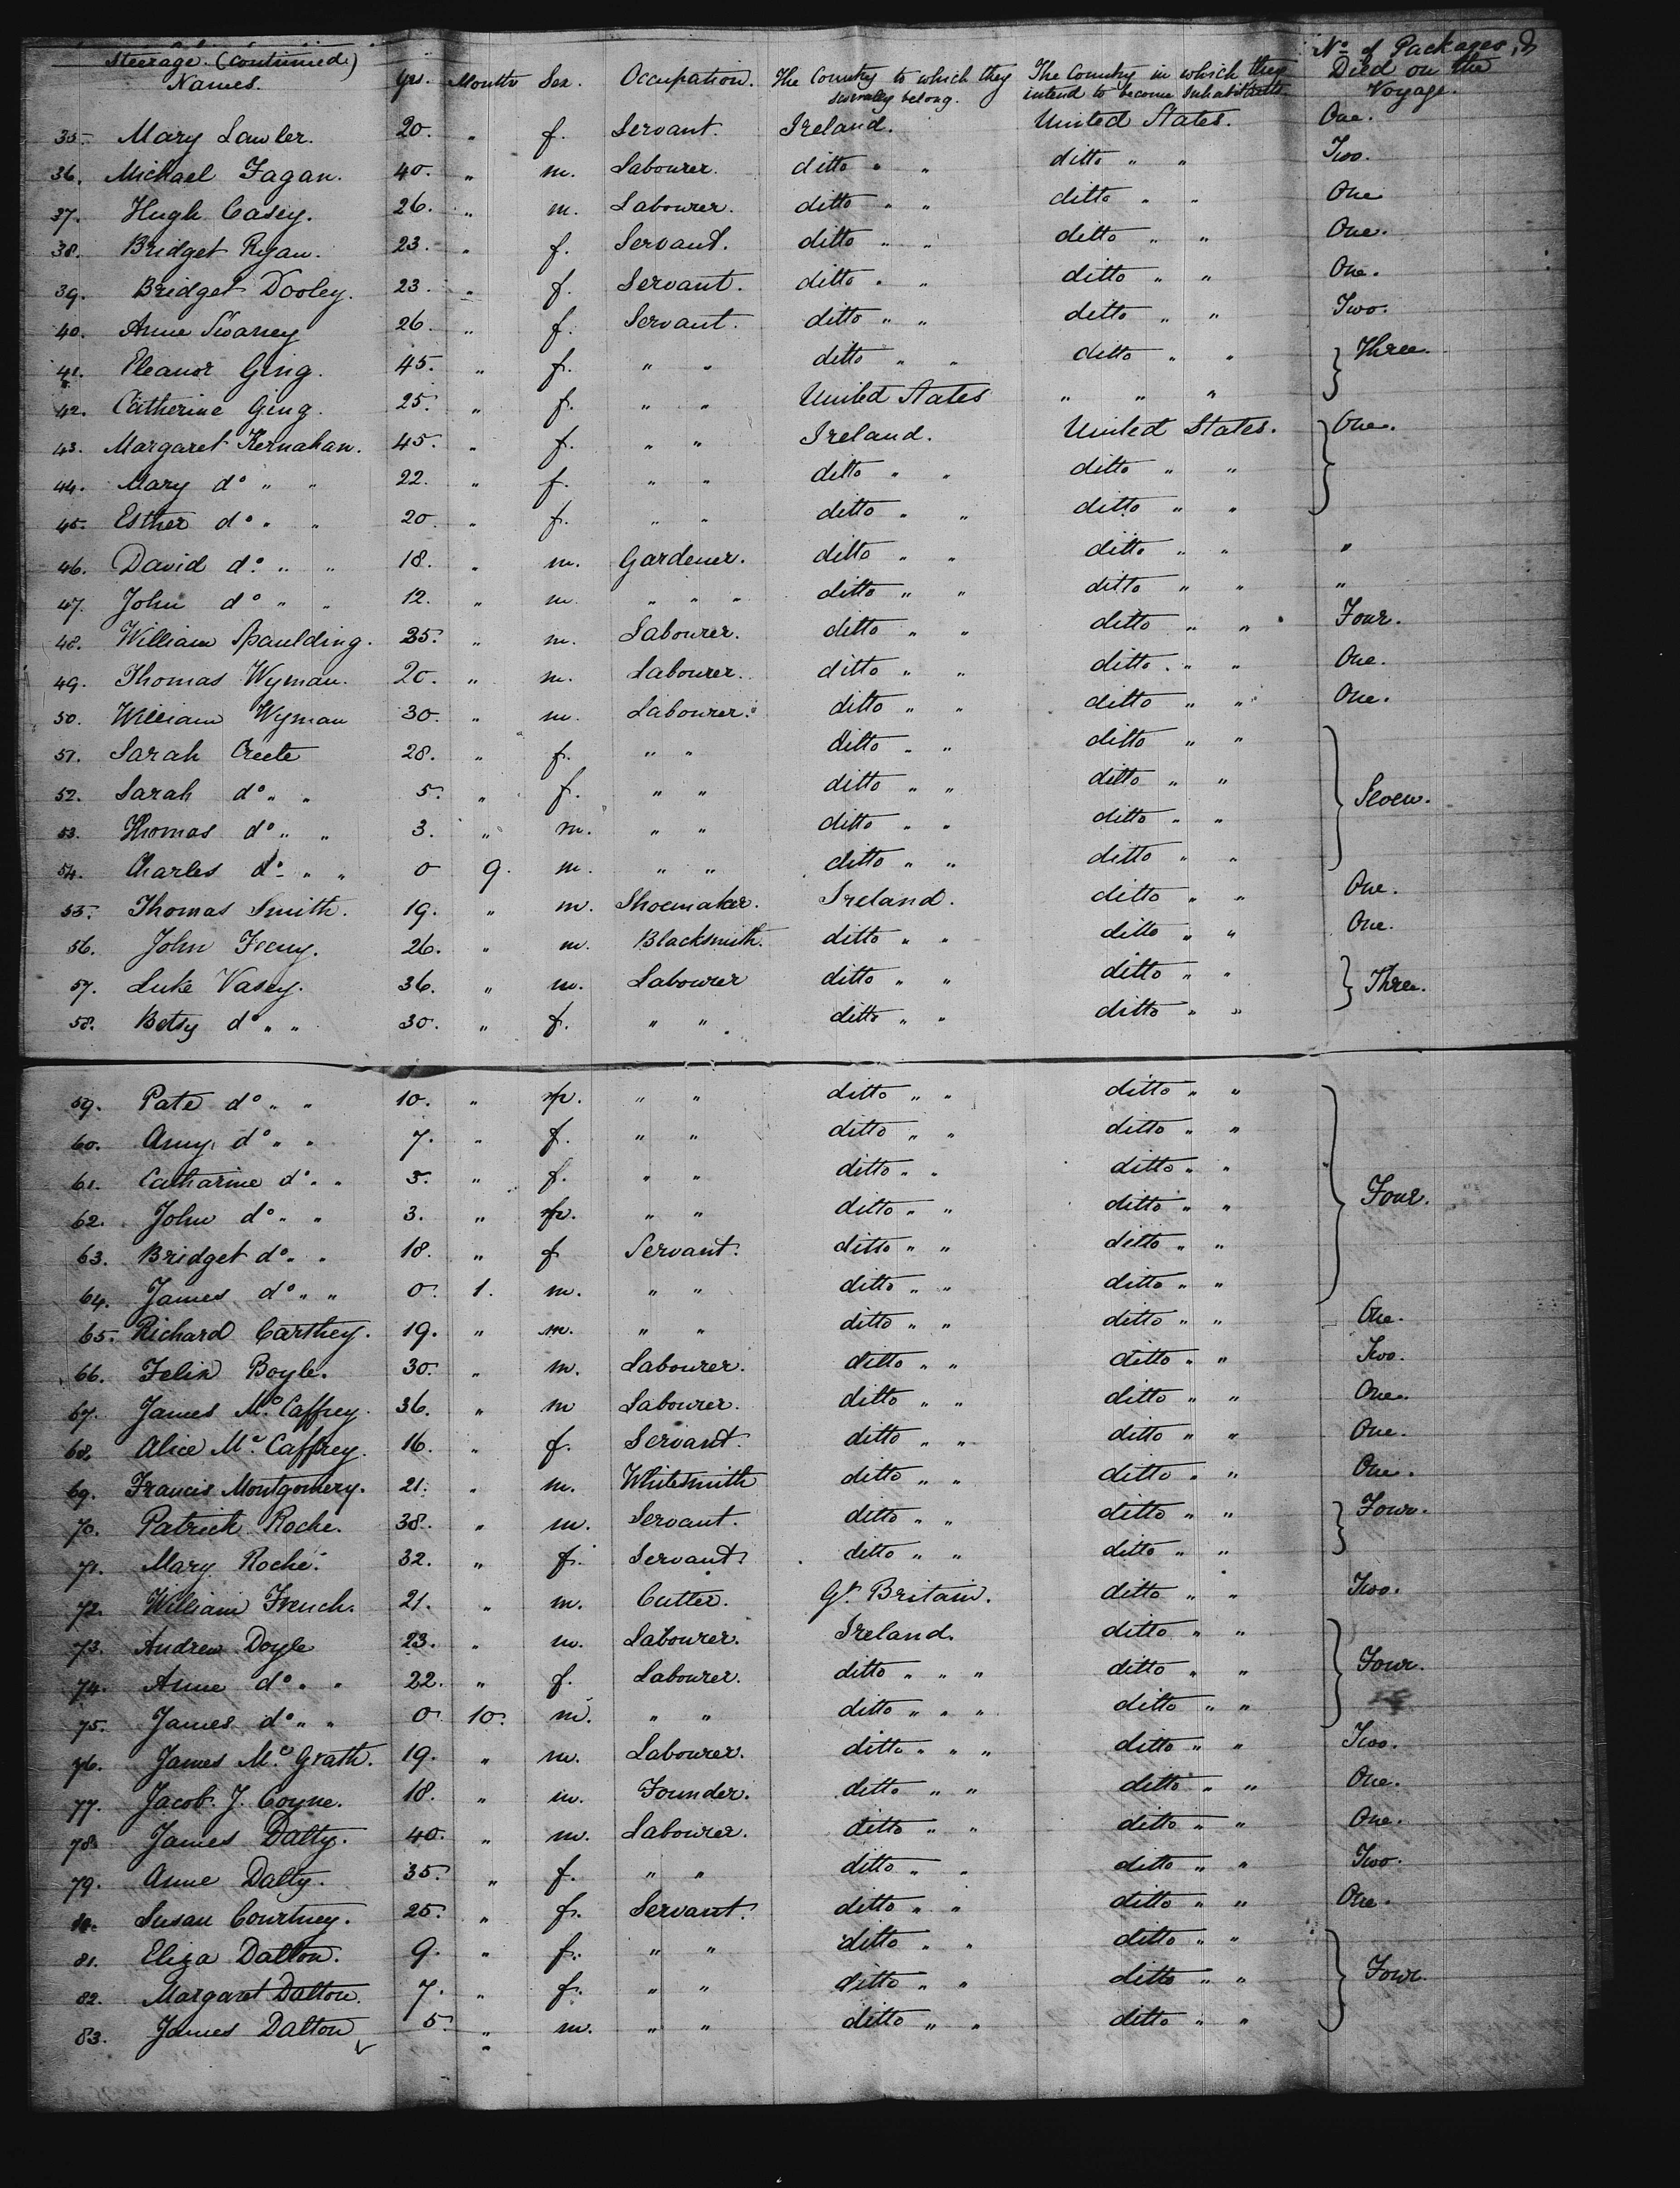 Steerage (Continued)
Names. Yrs. Months Sex. Occupation. The Country to which they severally belong. The Country in which they intend to become Inhabitants No. of Packages, & Died on the Voyage.
35. Mary Lawler. 20. " f. Servant. Ireland. United States. One.
36. Michael Fagan. 40. " m. Labourer. ditto " " ditto " " Two.
37. Hugh Casey. 26. " m. Labourer. ditto " " ditto " " One
38. Bridget Ryan. 23. " f. Servant. ditto " " ditto " " One.
39. Bridget Dooley. 23. " f. Servant. ditto " " ditto " " One.
40. Anne Swaney 26. " f. Servant. ditto " " ditto " " Two.
41. Eleanor Ging. 45. " f. " " ditto " " ditto " " } Three.
42. Catherine Ging. 25. " f. " " United States " " "
43. Margaret Kernahan. 45. " f. " " Ireland. United States. } One.
44. Mary do " " 22. " f. " " ditto " " ditto " "
45. Esther do " " 20. " f. " " ditto " " ditto " "
46. David do " " 18. " m. Gardener. ditto " " ditto " " "
47. John do " " 12. " m. " " " ditto " " ditto " " "
48. William Spaulding. 25. " m. Labourer. ditto " " ditto " " Four.
49. Thomas Wyman. 20. " m. Labourer. ditto " " ditto " " One.
50. William Wyman 30. " m. Labourer. ditto " " ditto " " One.
51. Sarah 28. " f. " " ditto " " ditto " "
52. Sarah do " " 5. " f. " " ditto " " ditto " " } Seven.
53. Thomas do " " 3. " m. " " ditto " " ditto " "
54. Charles do " " 0 9. m. " " ditto " " ditto " "
55. Thomas Smith. 19. " m. Shoemaker. Ireland. ditto " " One.
56. John 26. " m. Blacksmith. ditto " " ditto " " One.
57. Luke Vasey. 36. " m. Labourer ditto " " ditto " " } Three.
58. Betsy do " " 30. " f. " " ditto " " ditto " "
59. Pate do " " 10. " m. " " ditto " " ditto " "
60. Amy do " " 7. " f. " " ditto " " ditto " "
61. Catharine do " " 5. " f. " " ditto " " ditto " "
62. John do " " 3. " m. " " ditto " " ditto " " } Four.
63. Bridget do " " 18. " f Servant. ditto " " ditto " "
64. James do " " 0. 1. m. " " ditto " " ditto " "
65. Richard Carthey. 19. " m. " " ditto " " ditto " " One.
66. Felix Boyle. 30. " m. Labourer. ditto " " ditto " " Two.
67. James Mc. Caffrey. 36. " m Labourer. ditto " " ditto " " One.
68. Alice Mc. Caffrey. 16. " f. Servant. ditto " " ditto " " One.
69. Francis Montgomery. 21. " m. Whitesmith ditto " " ditto " " One.
70. Patrick Roche. 38. " m. Servant. ditto " " ditto " " } Four.
71. Mary Roche. 32. " f. Servant. ditto " " ditto " "
72. William French. 21. " m. Cutter. Gt. Britain. ditto " " Two.
73. Andrew Doyle 23. " m. Labourer. Ireland. ditto " "
74. Anne do " " 22. " f. Labourer. ditto " " " ditto " " } Four.
75. James do " " 0. 10. m. " " ditto " " " ditto " "
76. James Mc. Grath. 19. " m. Labourer. ditto " " " ditto " " Two.
77. Jacob. J. Coyne. 18. " m. Founder. ditto " " ditto " " One.
78. James Dalty. 40. " m. Labourer. ditto " " ditto " " One.
79. Anne Dalty. 35. " f. " " ditto " " ditto " " Two.
80. Susan Courtney. 25. " f. Servant. ditto " " ditto " " One.
81. Eliza Dalton. 9. " f. " " ditto " " ditto " "
82. Margaret Dalton. 7. " f. " " ditto " " ditto " " } Four.
83. James Dalton 5. " m. " " ditto " " ditto " "